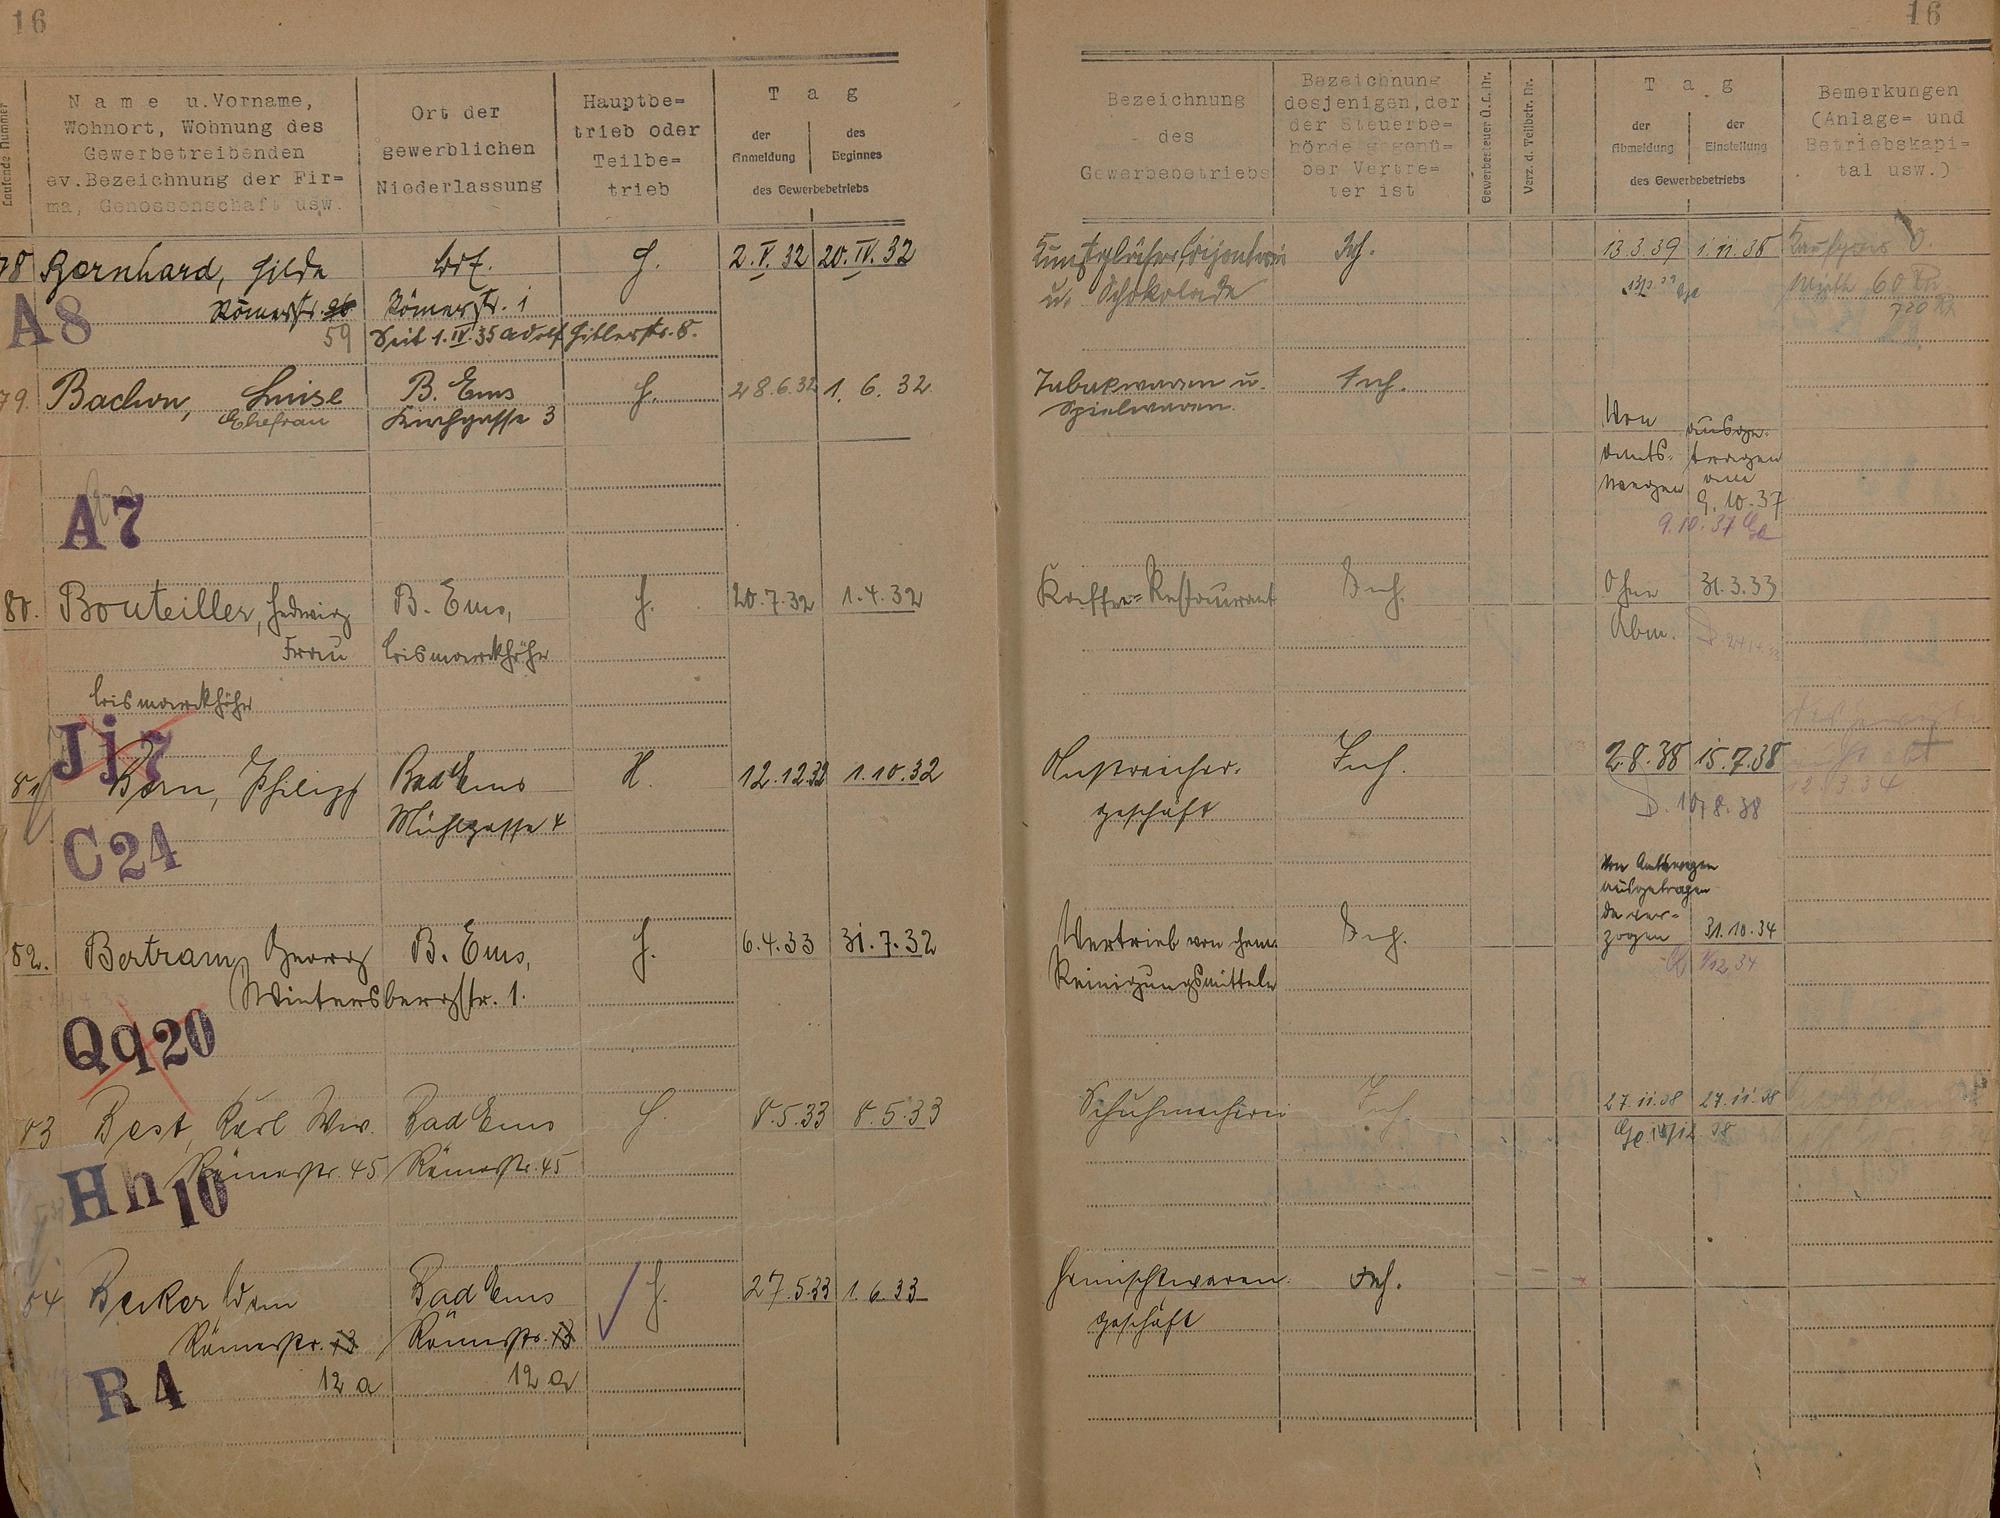 16
16
Laufende Nummer
Name u. Vorname,
Wohnort, Wohnung des
Gewerbetreibenden
ev. Bezeichnung der Fir=
ma, Genossenschaft usw.
Ort der
gewerblichen
Niederlassung
Hauptbe=
trieb oder
Teilbe=
trieb
Tag
der
Anmeldung
des
Beginnes
des Gewerbebetriebs
Bezeichnung
des
Gewerbebetriebs
Bezeichnung
desjenigen, der
der Steuerbe=
hörde gegenü=
ber Vertre=
ter ist
Gewerbesteuer Ü.L. Nr.
Verz. d. Teilbetr. Nr.
Tag
der
Abmeldung
der
Einstellung
des Gewerbebetriebs
Bemerkungen
(Anlage= und
Betriebskapi=
tal usw.)
78 Bernhard, Hilde
H.
2.V.32 20.IV.32
u. Schokolade
Inh.
13.3.39 1.11.38
A8
Römerstr. 96
59
Römerstr. 1
Seit 1.IV.35 Adolf Hitlerstr. 8.
60
720
79. Bachon, Luise
Ehefrau
B. Ems
Kirchgasse 3
H.
28.6.32 1. 6. 32
Tabakwaren u.
Spielwaren.
Inh.
Von Amts-
wegen
ausge-
tragen
am
9.10.37
9.10.37
A7
80. Bouteiller, Hedwig
Frau
Bismarckhöhe
B. Ems,
Bismarckhöhe
H.
20.7.32 1.4.32
Kaffee-Restaurant
Inh.
Ohne
Abm.
31.3.33
Jj7
81 Born, Philipp
Bad Ems
Mühlgasse 4
H.
12.12.32 1.10.32
Anstreicher-
geschäft
Inh.
2.8.38 15.7.38
12.3.34
10/8.38
C24
82. Bertram, Georg
Wintersbergstr. 1.
B. Ems,
H.
6.4.33 31.7.32
Vertrieb von chem.
Reinigungsmitteln
Inh.
Von Amtswegen
ausgetragen
da ver-
zogen
31.10.34
1/12 34
Qq20
83 Best, Karl Ww.
Römerstr. 45
Bad Ems
Römerstr. 45
H.
8.5.33 8.5.33
Schuhmacherei
Inh.
27.11.38 27.11.38
Hh10
84 Becker Wwe
Römerstr. 13
12 a
Bad Ems
Römerstr. 13
12 a
H.
27.5.33 1.6.33
Gemischtwaren-
geschäft
Inh.
R4